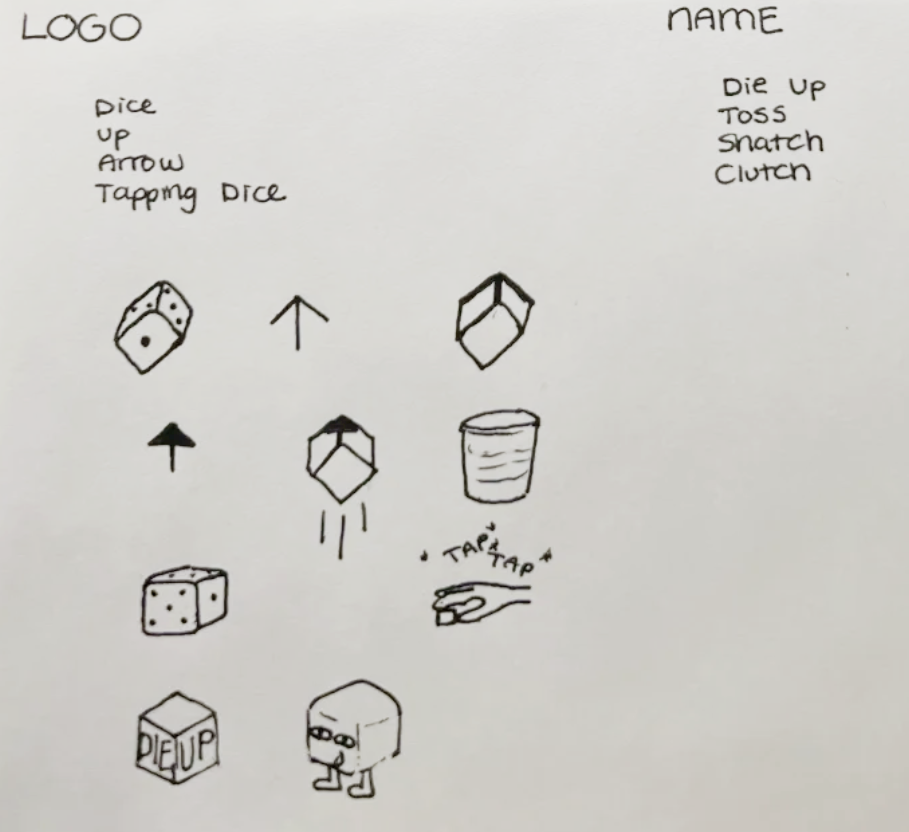 LOGO
NAME
Dice
UP
Arrow
Tapping Dice
Die Up
Toss
Snatch
Clutch
TAP
TAP
DIE UP